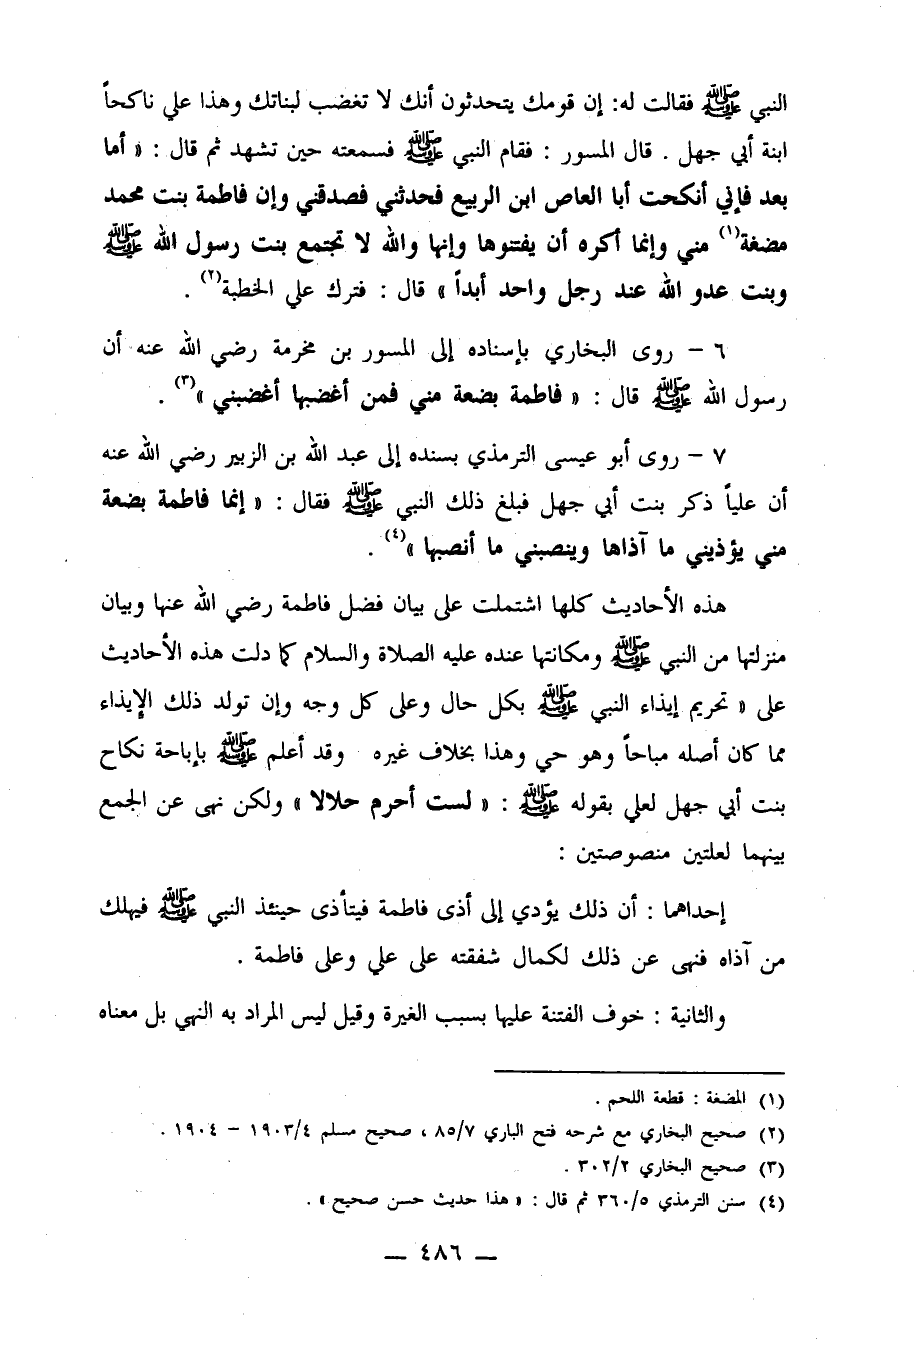 النبي ﷺ فقالت له: إن قومك يتحدثون أنك لا تغضب لبناتك وهذا علي ناكحاً
ابنة أبي جهل . قال المسور : فقام النبي ﷺ فسمعته حين تشهد ثم قال : « أما
بعد فإني أنكحت أبا العاص ابن الربيع فحدثني فصدقني وإن فاطمة بنت محمد
مضغة(١) مني وإنما أكره أن يفتنوها وإنها والله لا تجتمع بنت رسول الله ﷺ
وبنت عدو الله عند رجل واحد أبداً » قال : فترك علي الخطبة(٢) .
٦ – روى البخاري بإسناده إلى المسور بن مخرمة رضي الله عنه أن
رسول الله ﷺ قال : « فاطمة بضعة مني فمن أغضبها أغضبني »(٣) .
٧ – روى أبو عيسى الترمذي بسنده إلى عبد الله بن الزبير رضي الله عنه
أن علياً ذكر بنت أبي جهل فبلغ ذلك النبي ﷺ فقال : « إنما فاطمة بضعة
مني يؤذيني ما آذاها وينصبني ما أنصبها »(٤) .
هذه الأحاديث كلها اشتملت على بيان فضل فاطمة رضي الله عنها وبيان
منزلتها من النبي ﷺ ومكانتها عنده عليه الصلاة والسلام كما دلت هذه الأحاديث
على « تحريم إيذاء النبي ﷺ بكل حال وعلى كل وجه وإن تولد ذلك الإيذاء
مما كان أصله مباحاً وهو حي وهذا بخلاف غيره وقد أعلم ﷺ بإباحة نكاح
بنت أبي جهل لعلي بقوله ﷺ : « لست أحرم حلالا » ولكن نهى عن الجمع
بينهما لعلتين منصوصتين :
إحداهما : أن ذلك يؤدي إلى أذى فاطمة فيتأذى حينئذ النبي ﷺ فيهلك
من آذاه فنهى عن ذلك لكمال شفقته على علي وعلى فاطمة .
والثانية : خوف الفتنة عليها بسبب الغيرة وقيل ليس المراد به النهي بل معناه
(١) المضغة : قطعة اللحم .
(٢) صحيح البخاري مع شرحه فتح الباري ٨٥/٧ ، صحيح مسلم ١٩٠٣/٤ – ١٩٠٤ .
(٣) صحيح البخاري ٣٠٢/٢ .
(٤) سنن الترمذي ٣٦٠/٥ ثم قال : « هذا حديث حسن صحيح » .
— ٤٨٦ —